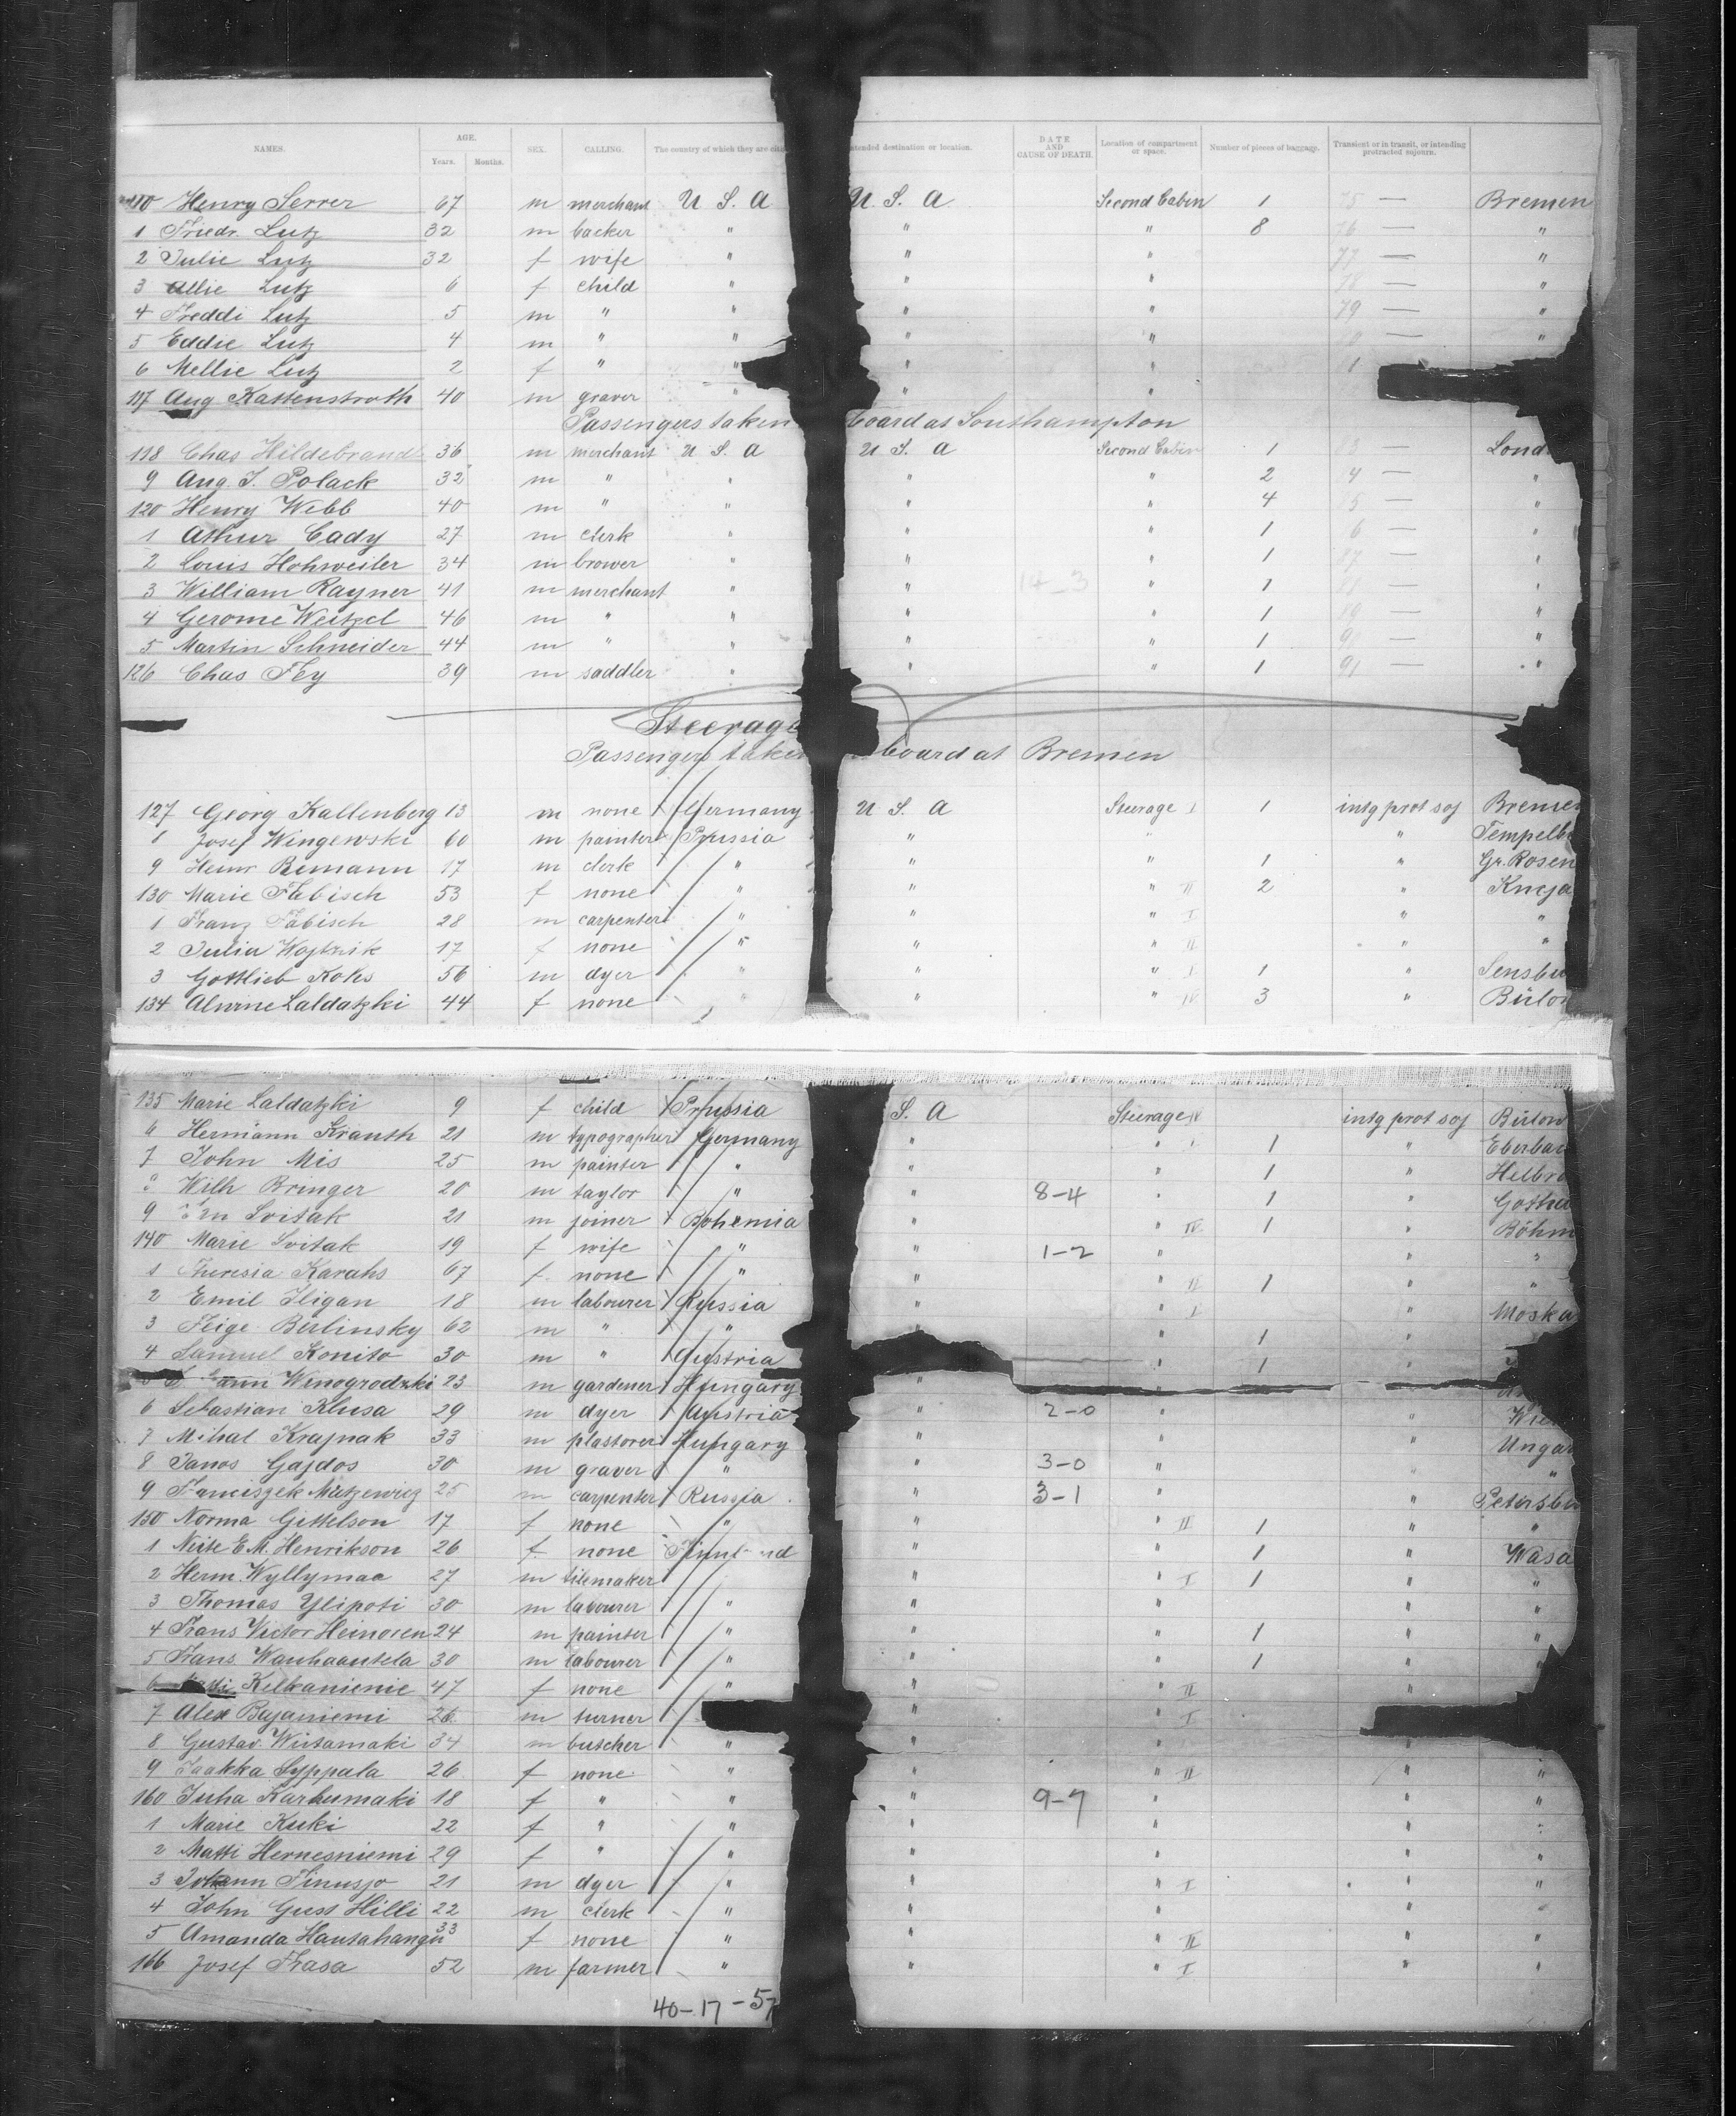 NAMES. AGE. Years. Months. SEX. CALLING. The country of which they are citi intended destination or location. DATE AND CAUSE OF DEATH. Location of compartment or space. Number of pieces of baggage. Transient or in transit, or intending protracted sojourn.
110 Henry Serrer 67 m merchant U S. A U. S. A. Second Cabin 1 75 — Bremen
1 Friedr. Lutz 32 m backer " " " 8 76 — "
2 Julie Lutz 32 f wife " " " 77 — "
3 Allie Lutz 6 f child " " " 78 — "
4 Freddi Lutz 5 m " " " " 79 — "
5 Eddie Lutz 4 m " " " " — "
6 Mellie Lutz 2 f " " " " 1 —
117 Aug Kattenstroth 40 m graver " " "
Passengers taken board at Southampton
118 Chas Hildebrand 36 m merchant U S A U S. A Second Cabin 1 — Lond
9 Aug. J. Polack 32 m " " " " 2 4 — "
120 Henry Webb 40 m " " " " 4 5 — "
1 Athur Cady 27 m clerk " " " 1 6 — "
2 Louis Hohweiler 34 m brower " " " 1 87 — "
3 William Rayner 41 m merchant " " 14-3 " 1 88 — "
4 Gerome Weitzel 46 m " " " " 1 89 — "
5 Martin Schneider 44 m " " " " 1 — "
126 Chas Fey 39 m saddler " " " 1 91 — "
Steerage
Passengers taken board at Bremen
127 Georg Kallenberg 13 m none Germany U S. A Steerage I 1 intg prot soj Breme
8 Josef Wingewski 60 m painter Prussia " " " Tempelb
9 Heinr Bemann 17 m clerk " " " 1 " Gr. Rosen
130 Marie Fabisch 53 f none " " " II 2 " Kneja
1 Franz Fabisch 28 m carpenter " " " I " "
2 Julia Wojtnik 17 f none " " " II " "
3 Gottlieb Koks 56 m dyer " " " I 1 " Sensbu
134 Alwine Laldatzki 44 f none " " " IV 3 " Bülow
135 Marie Laldatzki 9 f child Prussia S. A Steerage IV intg prot soj Bülow
6 Hermann Krauth 21 m typographer Germany " " I 1 " Eberbac
7 John Mis 25 m painter " " " 1 " Heilbro
8 Wilh Bringer 20 m taylor " " 8-4 " 1 " Gotha
9 Svitak 21 m joiner Bohemia " " IV 1 " Böhm
140 Marie Svitak 19 f wife " " 1-2 " " "
1 Theresia Karahs 67 f none " " " II 1 " "
2 Emil Iligan 18 m labourer Russia " " I " Moska
3 Feige Berlinsky 62 m " " " " 1 "
4 Samuel Konito 30 m " Austria " 1 "
Winogrodzki 23 m gardener Hungary "
6 Sebastian Klusa 29 m dyer Austria " 2-0 " " Wie
7 Mihal Krajnak 33 m plastorer Hungary " " " Unga
8 Janos Gajdos 30 m graver " " 3-0 " " "
9 Franciszek Matzewicz 25 m carpenter Russia " 3-1 " " Petersbu
150 Norma Gittelson 17 f none " " " II 1 " "
1 Neite E M. Henrikson 26 f none Finland " " 1 " Wasa
2 Herm. Wyllymaa 27 m tilemaker " " I 1 " "
3 Thomas Ylipoti 30 m labourer " " " " "
4 Frans Victor Heinonen 24 m painter " " " 1 " "
5 Frans Wauhaantela 30 m labourer " " " 1 " "
6 Keltanienie 47 f none " " " II "
7 Alex Bajaniemi 26 m turner " " I
8 Gustav. Wiitamaki 34 m butscher " " " "
9 Jaakka Syppala 26 f none " " " II " "
160 Juha Karhumaki 18 f " " " 9-7 " " "
1 Marie Kuki 22 f " " " " " "
2 Matti Hernesniemi 29 f " " " " " "
3 Johann Finusjo 21 m dyer " " " I " "
4 John Gust Hilli 22 m clerk " " " " "
5 Amanda Hautahangu 33 f none " " " II " "
166 Josef Frasa 52 m farmer " " " I " "
40-17-57